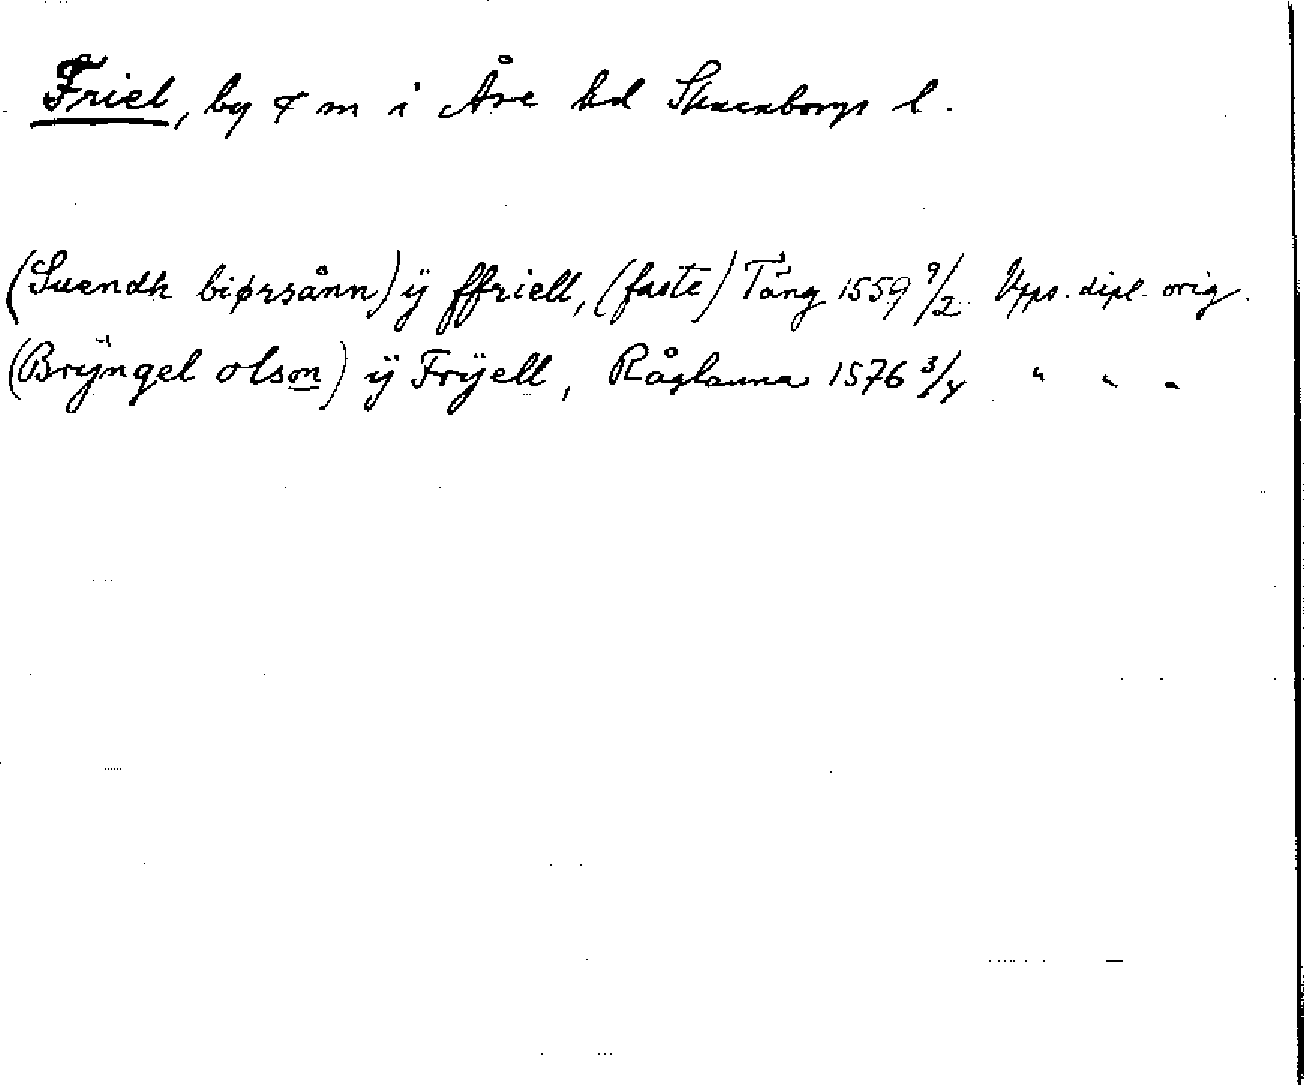 Friel, by & m i Åse hd Skaraborgs l.
(Suendh biørsånn) ÿ ffriell, (faste) Tång 1559 9/2 Upps. dipl. orig.
(Brÿngel olson) ÿ Frÿell, Råglanna 1576 3/4 " " "